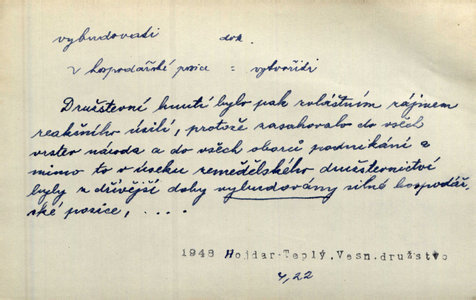 vybudovati dok.
v hospodářské posice = vytvořiti
Družstevní hnutí bylo pak zvláštním zájmem
reakčního úsilí, protože zasahovalo do všech
vrstev národa a do všech oborů podnikání a
mimo to v úseku zemědělského družstevnictví
byly z dřívější doby vybudovány silné hospodář
ské posice, . . . .
1948 Hojdar-Teplý.Vesn.družstvo
4,22